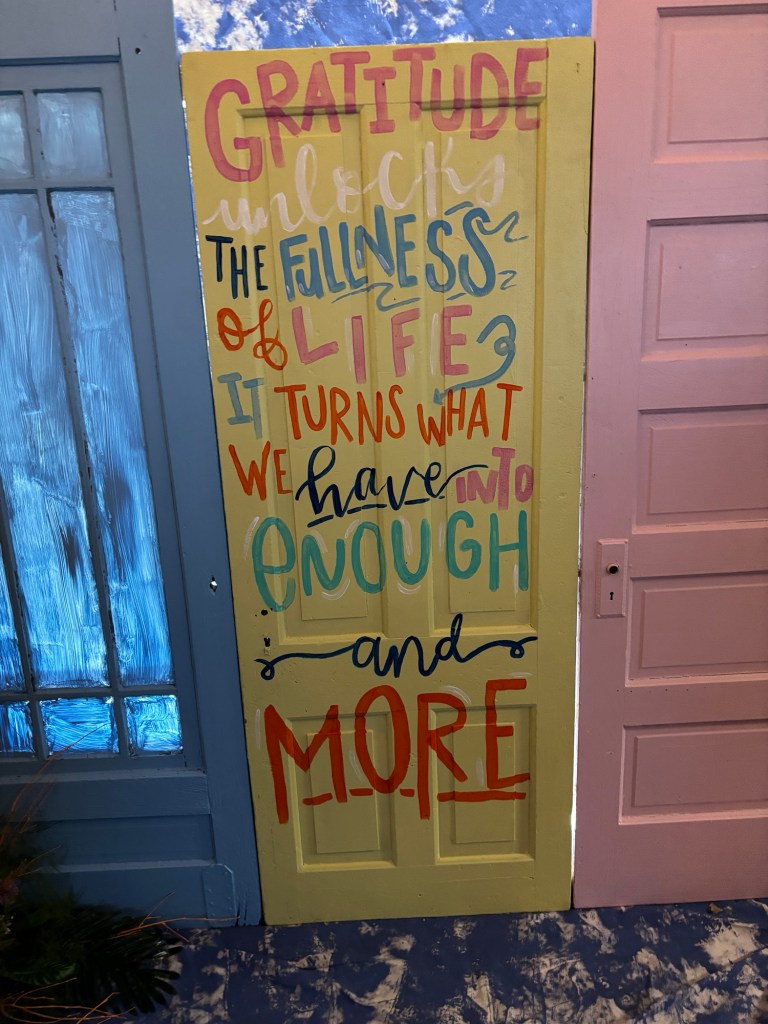 GRATITUDE
unlocks
THE FULLNESS
Of LIFE
IT TURNS WHAT
WE have INTO
ENOUGH
and
MORE